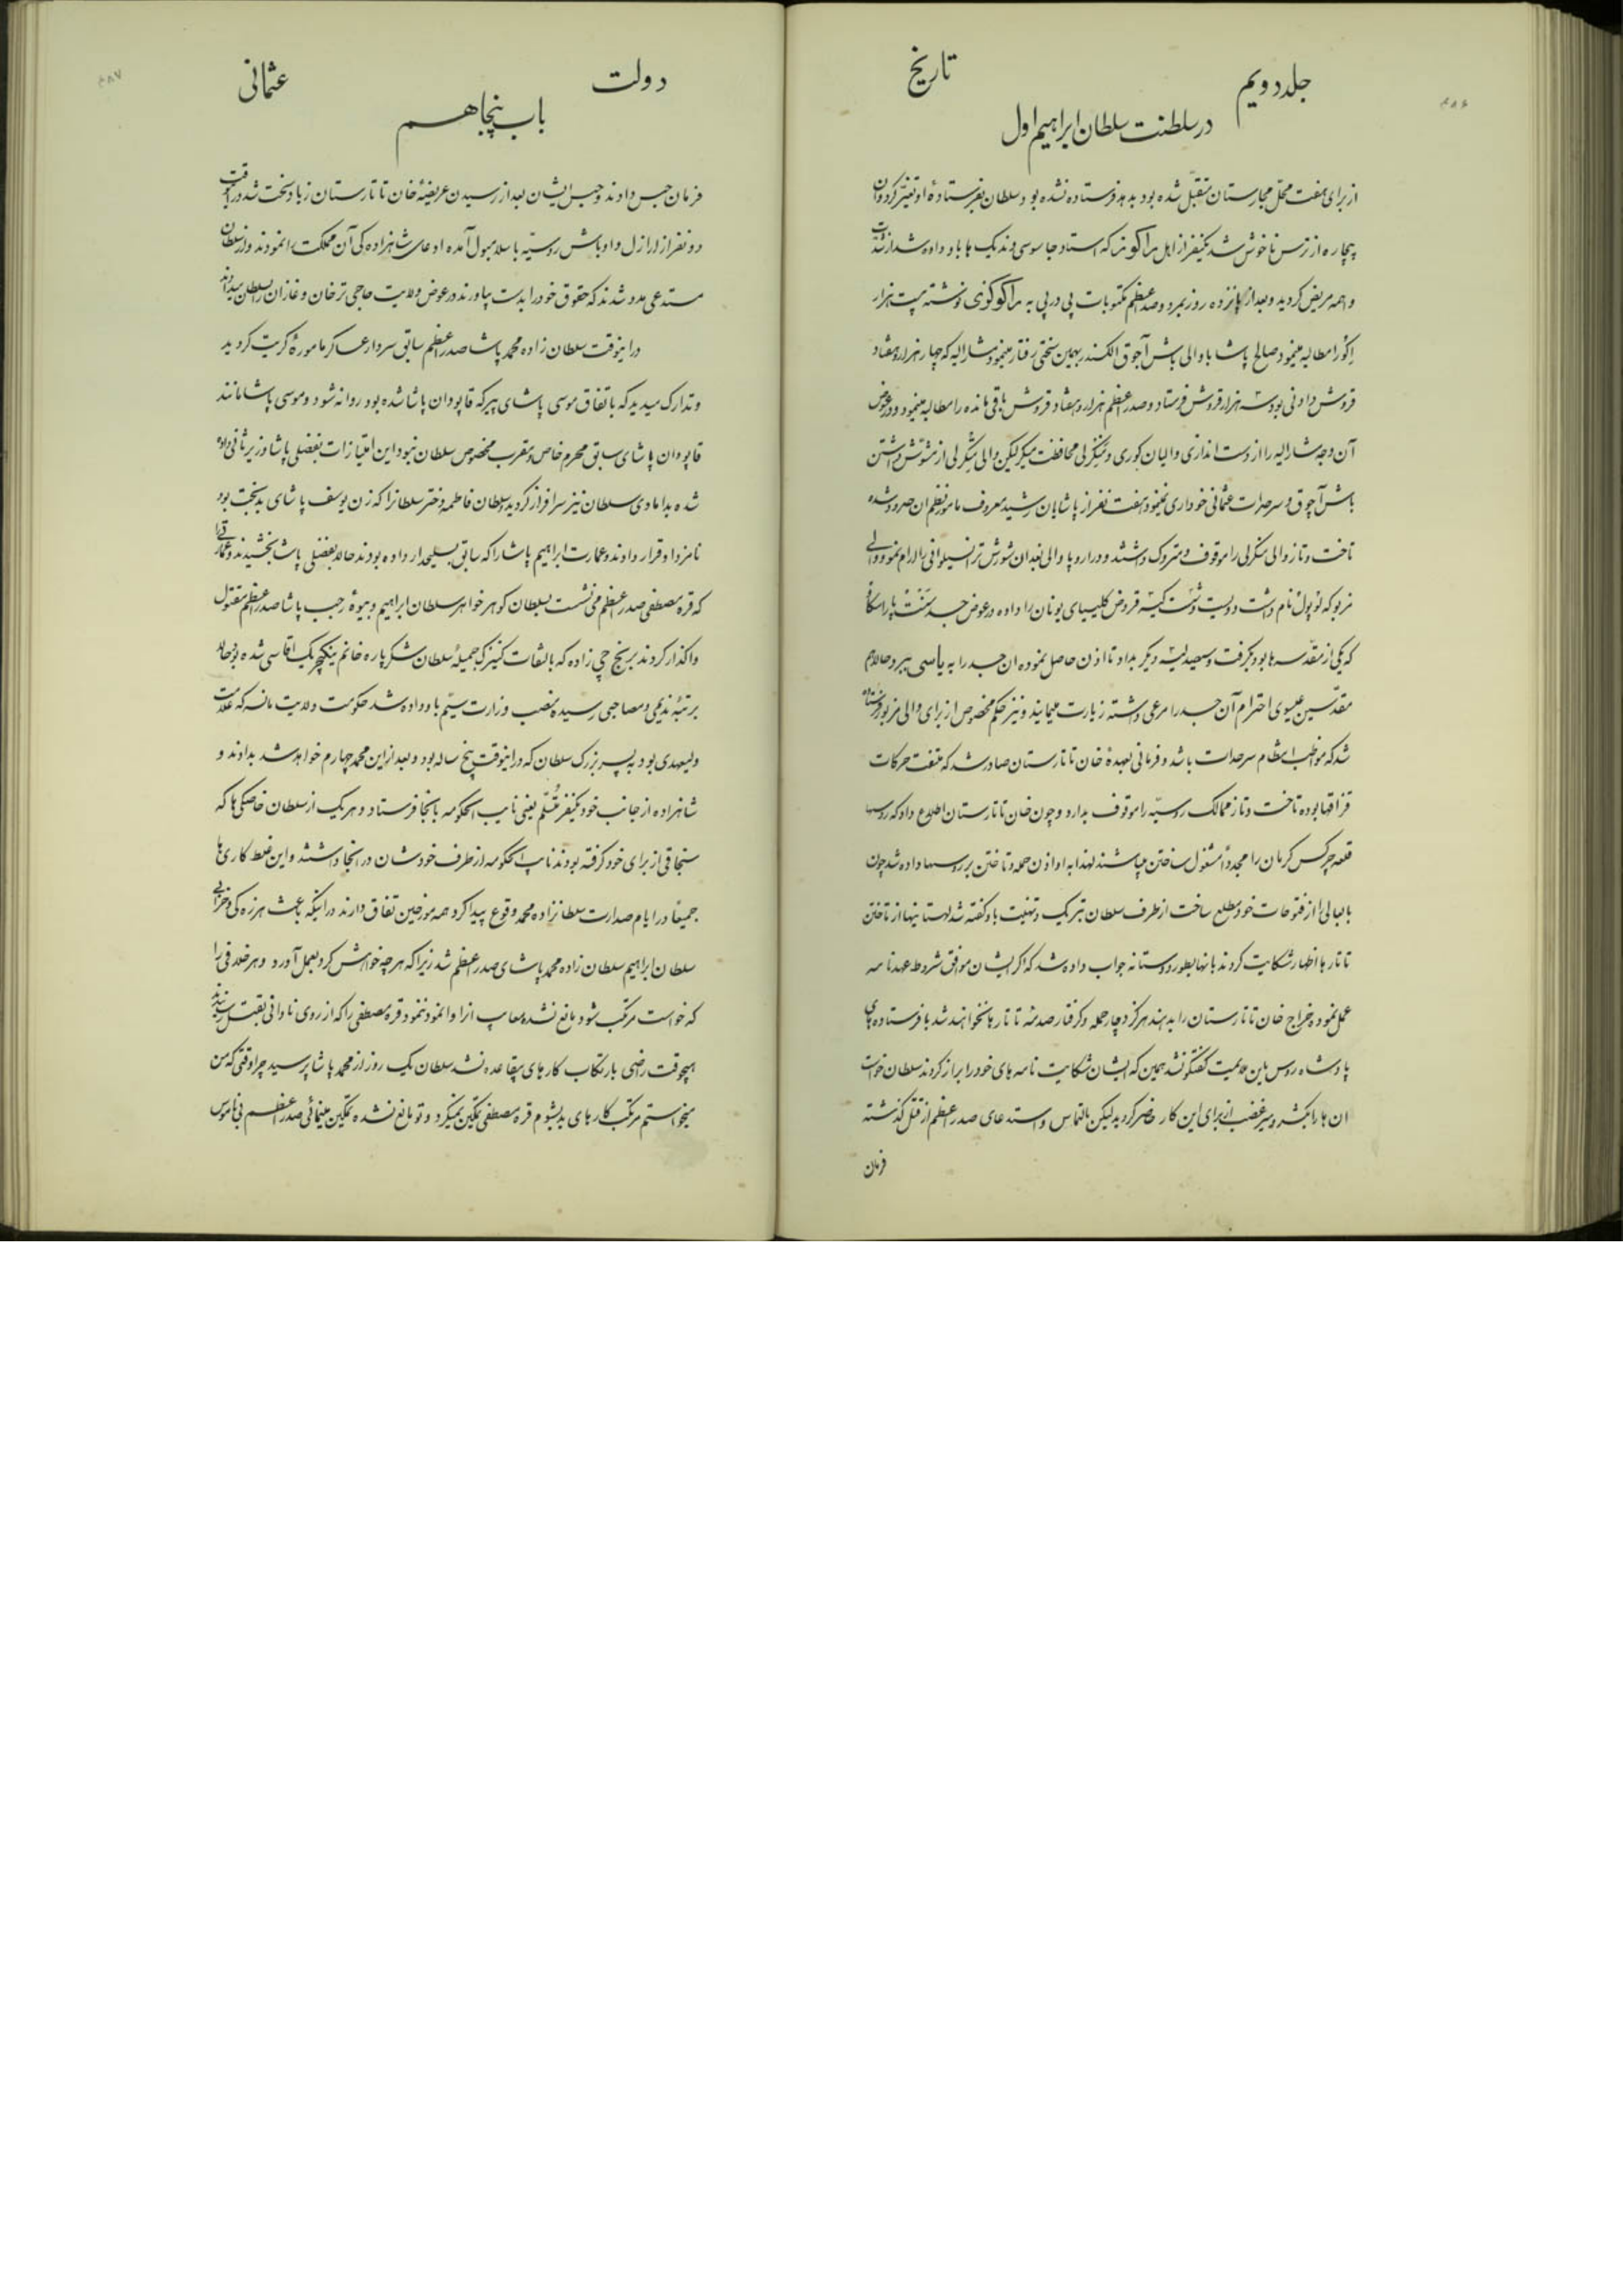 ۴۸۶
جلد دویم تاریخ
در سلطنت سلطان ابراهیم اول
از برای هفت محل مجارستان متقبل شده بود بدهد فرستاده نشده بود سلطان بفرستادۀ او تغیر کرد و آن
بیچاره از ترس ناخوش شد یکنفر از اهل مراکو نزد که استاد جاسوسی و ندیک ها باو داوه شد از
واهمه مریض کردید و بعد از پانزده روز بمرد و صدر اعظم مکتوبات پی در پی به راکوکزی نوشته بیست هزار
اکو را مطالبه مینمود صالح پاشا با والی باش آچوق الکسندر بهمین سختی رفتار مینمود مشارالیه که چهار هزار و هفتاد
قروش دادنی بود سه هزار قروش فرستاد و صدر اعظم هزار و هفتاد قروش باقی مانده را مطالبه مینمود و در عوض
آن وجه مشارالیه را از دست اندازی والیان کوری و منکرلی محافظت میکرد لیکن والی منکرلی از مشوش داشتن
باش آچوق و سرحدات عثمانی خودداری نمینمود هفت نفر از پاشایان رشید معروف مامور نظم ان حدود شده
تاخت و تاز والی منکرلی را موقوف و متروک داشتند و در اروپا والی بغدان شورش ترانسیلوانی را آرام نمود و والی
مزبور که لوپول نام داشت دویست و شصت کیسه قروض کلیسیای یونان را داده در عوض جسد سنت پاراسکا
که یکی از مقدسه ها بود بگرفت و سیصد کیسه دیگر بداد تا اذن حاصل نموده ان جسد را به یاسی ببرد و حالا هم
مقدسین عیسوی احترام آن جسد را مرعی داشته زیارت مینمایند و نیز حکم مخصوص از برای والی مزبور فرستاده
شد که مواظب انتظام سرحدات باشد و فرمانی بعهدۀ خان تاتارستان صادر شد که ملتفت حرکات
قزاقها بوده تاخت و تاز ممالک روسیه را موقوف بدارد و چون خان تاتارستان اطلاع داد که روسها
قلعه چرکس کرمان را مجدداً مشغول ساختن میباشند لهذا به او اذن حمله و تاختن بر روسها داده شد چون
بابعالی را از فتوحات خود مطلع ساخت از طرف سلطان تبریک و تهنیت باو کفته شد لهستانیها از تاختن
تاتارها اظهار شکایت کردند بانها بطور دوستانه جواب داده شد که اکر ایشان موافق شروط عهدنامه
عمل نموده خراج خان تاتارستان را بدهند هرکز دچار حمله و کرفتار صدمه تاتارها نخواهند شد با فرستاده های
پادشاه روس باین ملایمت کفتکو نشد همین که ایشان شکایت نامه های خود را ابراز کردند سلطان خواست
ان ها را بکشد و میرغضب از برای این کار حاضر کردید لیکن بالتماس و استدعای صدر اعظم از قتل کذشته
فرمان
۴۸۷
دولت عثمانی
باب پنجاهم
فرمان حبس دادند و حبس ایشان بعد از رسیدن عریضۀ خان تاتارستان زیاد سخت شد در آنوقت
دو نفر از اراذل و اوباش روسیه باسلامبول آمده ادعای شاهزاده کی آن مملکت را نمودند و از سلطان
مستدعی مدد شدند که حقوق خود را بدست بیاورند در عوض ولایت حاجی ترخان و غازان را بسلطان میدادند
در اینوقت سلطان زاده محمد پاشا صدر اعظم سابق سردار عساکر مامورۀ کریت کردید
و تدارک میدید که باتفاق موسی پاشای پیر که قاپودان پاشا شده بود روانه شود و موسی پاشا مانند
قاپودان پاشای سابق محرم خاص و مقرب مخصوص سلطان نبود این امتیازات بفضلی پاشا وزیر ثانی داده
شده بدامادی سلطان نیز سرافراز کردید و سلطان فاطمه دختر سلطانرا که زن یوسف پاشای بدبخت بود
نامزد او قرار دادند و عمارت ابراهیم پاشا را که سابق بسلیحدار داده بودند حالا بفضلی پاشا بخشیدند و عمارتی را
که قره مصطفی صدر اعظم می نشست بسلطان کوهر خواهر سلطان ابراهیم و بیوۀ رجب پاشا صدر اعظم مقتول
واکذار کردند برنج چی زاده که بالتفات کنیزک جمیلۀ سلطان شکرپاره خانم ینکچریک اقاسی شده بود حالا
برتبۀ ندیمی و مصاحبی رسیده منصب وزارت سیم باو داده شد حکومت ولایت مانسه که علامت
ولیعهدی بود به پسر بزرک سلطان که در اینوقت پنج ساله بود و بعد از این محمد چهارم خواهد شد بدادند و
شاهزاده از جانب خود یکنفر متسلم یعنی نایب الحکومه بانجا فرستاد و هر یک از سلطان خاصکی ها که
سنجاقی از برای خود کرفته بودند نایب الحکومه از طرف خودشان در انجا داشتند و این غلط کاری ها
جمیعاً در ایام صدارت سلطانزاده محمد وقوع پیدا کرد همه مورخین اتفاق دارند در اینکه باعث هرزه کی و خرابی
سلطان ابراهیم سلطان زاده محمد پاشای صدر اعظم شد زیرا که هر چه خواهش کرد بعمل آورد و هر خلافی را
که خواست مرتکب شود مانع نشده معایب انرا وا نمود ننمود قره مصطفی را که از روی نادانی بقتل رسانیدند
هیچوقت راضی بارتکاب کارهای بیقاعده نشد سلطان یک روز از محمد پاشا پرسید چرا وقتی که من
میخواستم مرتکب کارهای بد بشوم قره مصطفی تمکین نمیکرد و تو مانع نشده تمکین مینمائی صدر اعظم بی ناموس